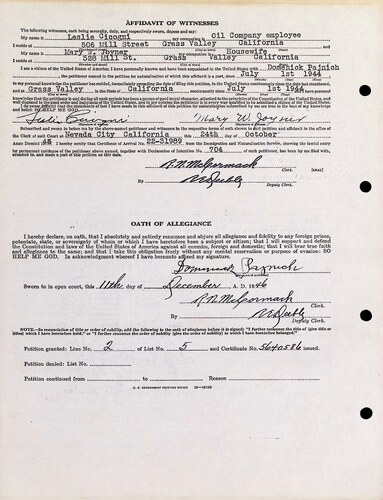 AFFIDAVIT OF WITNESSES
The following witnesses, each being severally, duly, and respectively sworn, depose and say:
My name is Leslie my occupation is Oil Company employee
I reside at 506 Mill Street Grass Valley California
My name is Mary W. Joyner my occupation is Housewife
I reside at 528 Mill St. Grass Valley California
I am a citizen of the United States of America; I have personally known and have been acquainted in the United States with Domenick Pajnich
, the petitioner named in the petition for naturalization of which this affidavit is a part, since July 1st 1944
to my personal knowledge the petitioner has resided, immediately preceding the date of filing this petition, in the United States continuously since the date last mentioned,
and at Grass Valley, in the State of California continuously since July 1st 1944
HELP ME GOD.
Mary W. Joyner
Subscribed and sworn to before me by the above-named petitioner and witnesses in the respective forms of oath shown in said petition and affidavit in the office of the
Clerk of said Court at Nevada City California this 24th day of October
Anno Domini I hereby certify that Certificate of Arrival No. 22-31989 from the Immigration and Naturalization Service, showing the lawful entry
for permanent residence of the petitioner above named, together with Declaration of Intention No. 704 of such petitioner, has been by me filed with,
attached to, and made a part of this petition on this date.
R. N. McCormack Clerk. [SEAL]
By
Deputy Clerk.
OATH OF ALLEGIANCE
I hereby declare, on oath, that I absolutely and entirely renounce and abjure all allegiance and fidelity to any foreign prince,
potentate, state, or sovereignty of whom or which I have heretofore been a subject or citizen; that I will support and defend
the Constitution and laws of the United States of America against all enemies, foreign and domestic; that I will bear true faith
and allegiance to the same; and that I take this obligation freely without any mental reservation or purpose of evasion: SO
HELP ME GOD. In acknowledgment whereof I have hereunto affixed my signature.
Dominick Pajnich
Sworn to in open court, this 11th day of December, A. D. 1946
R. N. McCormack
Clerk.
By
Deputy Clerk.
NOTE.—In renunciation of title or order of nobility, add the following to the oath of allegiance before it is signed: "I further renounce the title of (give title or
titles) which I have heretofore held," or "I further renounce the order of nobility (give the order of nobility) to which I have heretofore belonged."
Petition granted: Line No. 2 of List No. 5 and Certificate No. 5640586 issued.
Petition denied: List No.
Petition continued from to Reason
U. S. GOVERNMENT PRINTING OFFICE